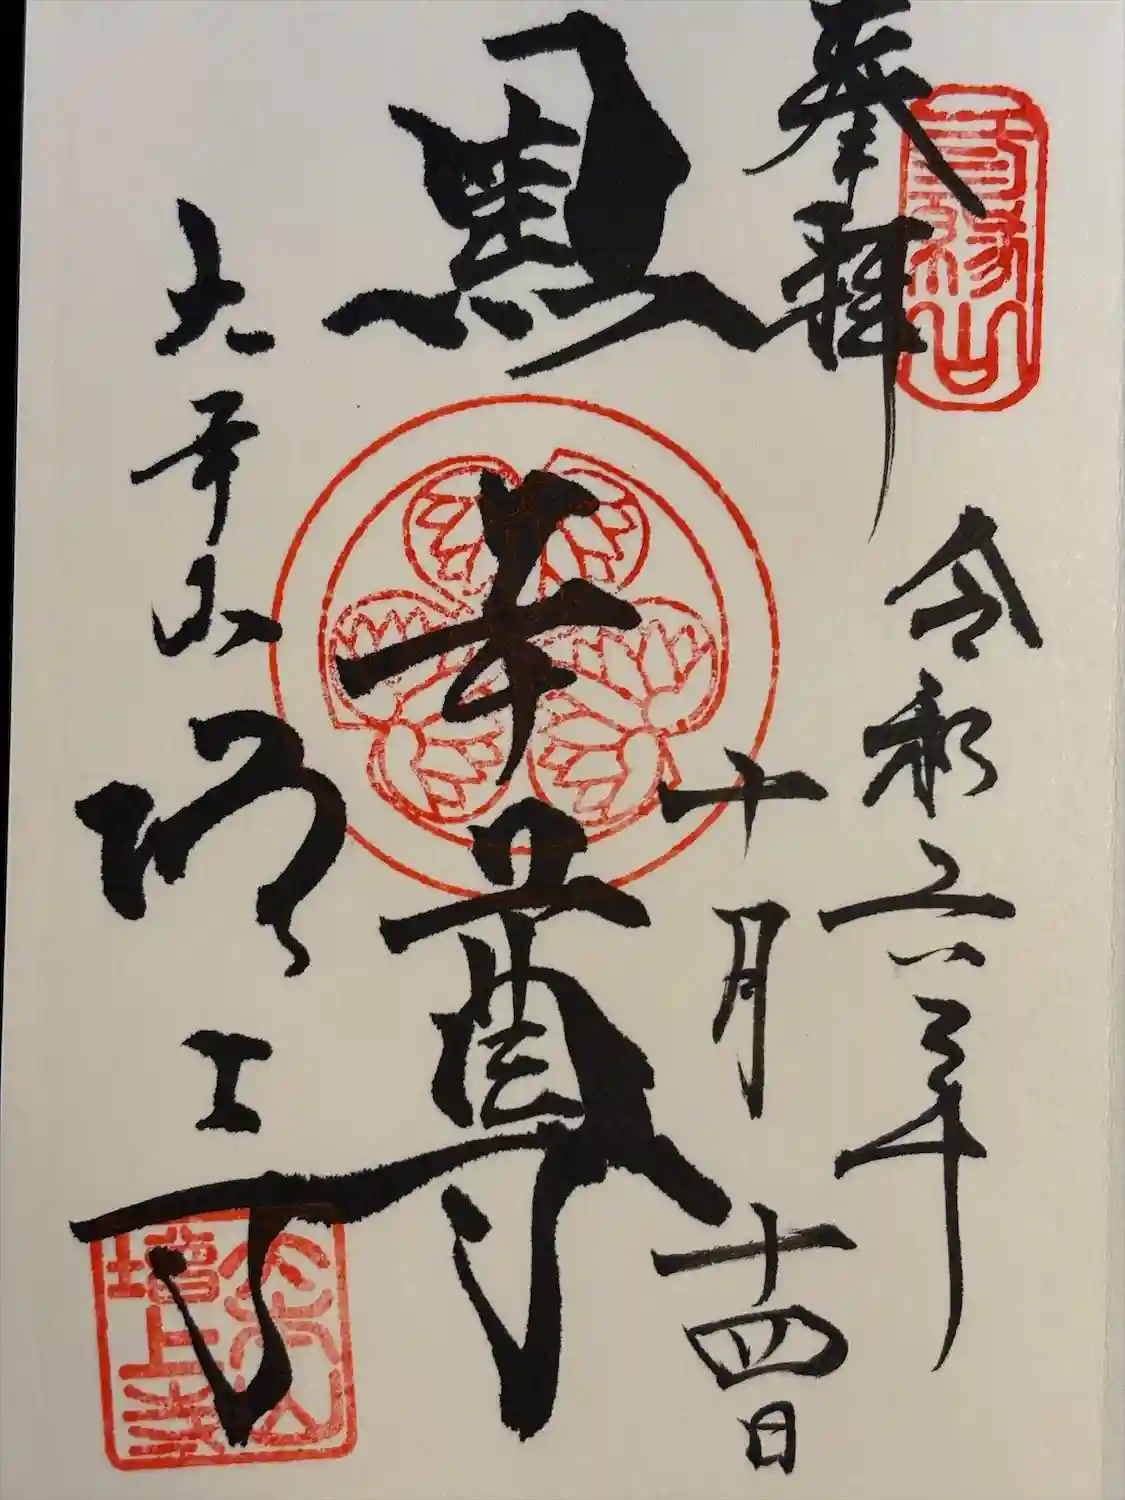 奉拝
三縁山
令和六年
十月十四日
黒本尊
大本山
増上寺
大本山
増上寺